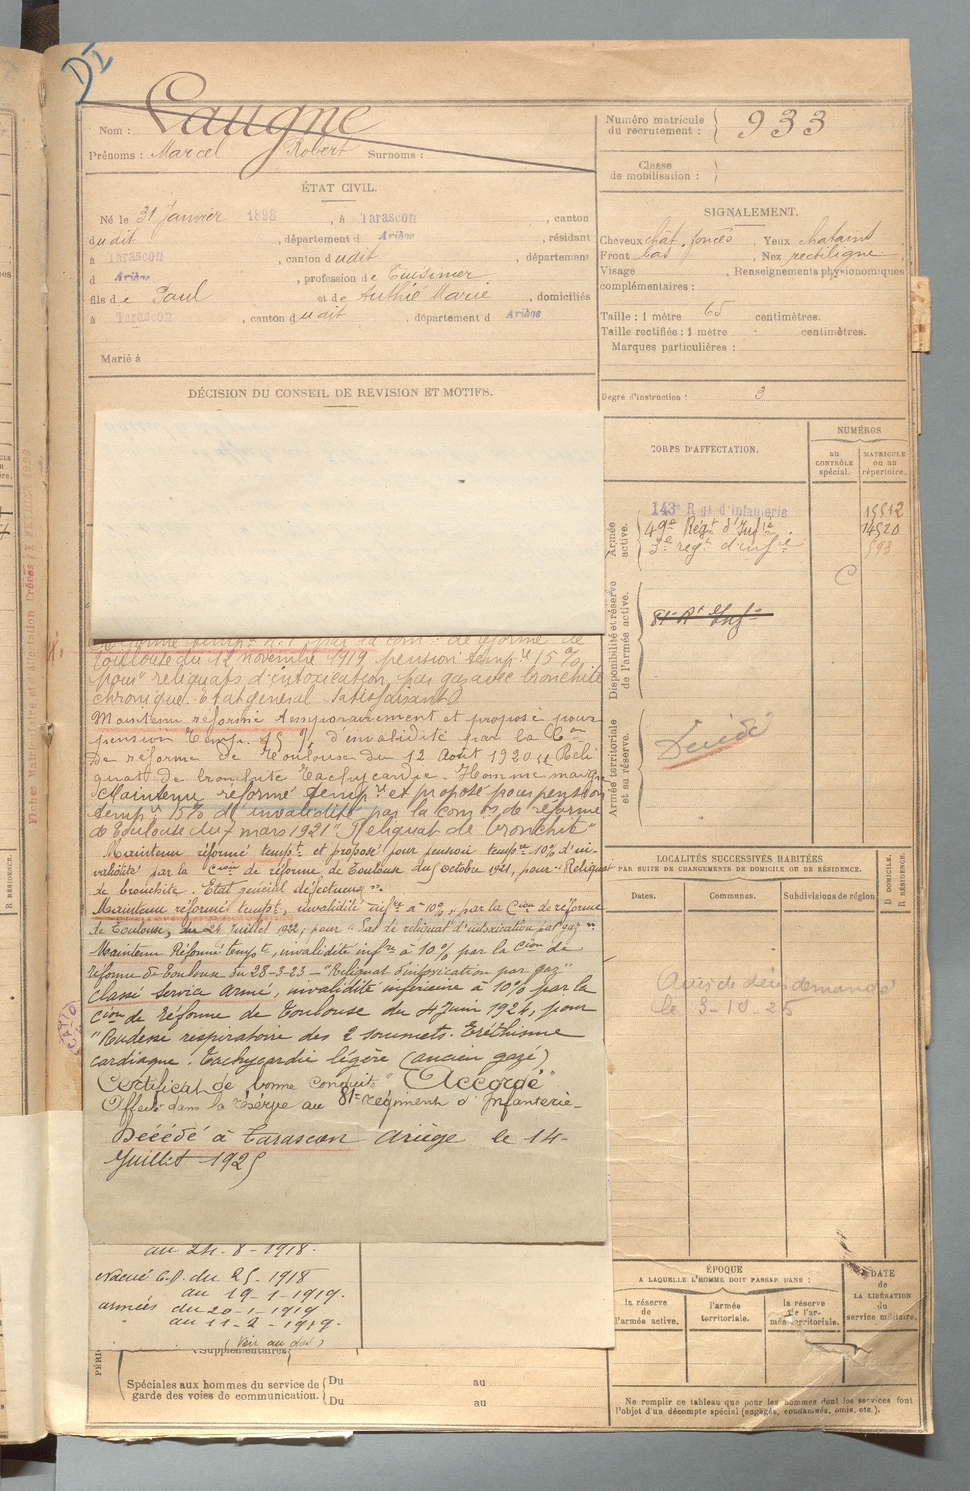 DI
Nom : Laugne
Prénoms : Marcel Robert Surnoms :
Numéro matricule du recrutement : 933
Classe de mobilisation :
ÉTAT CIVIL.
Né le 31 Janvier 1898, à Tarascon, canton
dudit, département d Ariège, résidant
à Tarascon, canton dudit, département
d Ariège, profession de Cuisinier
fils de Paul et de Authié Marie, domiciliés
à Tarascon, canton dudit, département d Ariège
Marié à
SIGNALEMENT.
Cheveux chât. foncés, Yeux chatains
Front bas, Nez rectiligne
Visage, Renseignements physionomiques
complémentaires :
Taille : 1 mètre 65 centimètres.
Taille rectifiée : 1 mètre centimètres.
Marques particulières :
Degré d'instruction : 3
DÉCISION DU CONSEIL DE REVISION ET MOTIFS.
CORPS D'AFFECTATION.
NUMÉROS
au CONTRÔLE spécial.
MATRICULE ou au répertoire.
Armée active.
143e Rgt d'Infanterie 15512
49e Régt d'Infie 14520
3e regt d'infie 593
C
Disponibilité et réserve de l'armée active.
81e Rt Infie
Armée territoriale et sa réserve.
Décédé
com: de réforme de
Toulouse du 12 novembre 1919 pension temp.re 15 %
pour "reliquats d'intoxication par gaz avec bronchite
chronique. Etat général satisfaisant"
Maintenu réformé temporairement et proposé pour
pension temp. 15 % d'invalidité par la Con
de réforme de Toulouse du 12 Août 1920 "Reli
quat de bronchite Tachycardie. Homme maigre
Maintenu réformé tempre et proposé pour pension
tempre 15% d'invalidité par la comon de réforme
de Toulouse du 7 mars 1921 "Reliquat de bronchite"
Maintenu réformé tempt et proposé pour pension tempre 10% d'in-
validité par la Cion de réforme de Toulouse du 5 octobre 1921, pour "Reliquat
de bronchite. Etat général défectueux".
Maintenu réformé tempt, invalidité infre à 10%, par la Cion de réforme
de Toulouse, du 24 Juillet 1922, pour "Pas de reliquat d'intoxication par gaz"
Maintenu Réformé tempt, invalidité infre à 10% par la Cion de
réforme de Toulouse du 28-3-23 - "Reliquat d'intoxication par gaz"
Classé Service Armé, invalidité inférieure à 10% par la
Cion de Réforme de Toulouse du 4 Juin 1924, pour
"Rudesse respiratoire des 2 sommets. Eréthisme
cardiaque. Tachycardie légère (ancien gazé)
Certificat de bonne conduite "Accordé"
Affecté dans la réserve au 81e régiment d'Infanterie-
Décédé à Tarascon Ariège le 14-
Juillet 1925
LOCALITÉS SUCCESSIVES HABITÉES
PAR SUITE DE CHANGEMENTS DE DOMICILE OU DE RÉSIDENCE.
Dates.
Communes.
Subdivisions de région.
D. DOMICILE.
R. RÉSIDENCE.
Avis de décès demandé
le 3-10-25
au 24-8-1918.
évacué C.P. du 25-1918
au 19-1-1919.
armées du 20-1-1919
au 11-2-1919.
(Voir au dos)
Supplémentaires.
Spéciales aux hommes du service de garde des voies de communication.
Du au
Du au
ÉPOQUE
A LAQUELLE L'HOMME DOIT PASSER DANS :
la réserve de l'armée active.
l'armée territoriale.
la réserve de l'armée territoriale.
DATE DE LA LIBÉRATION du service militaire.
Ne remplir ce tableau que pour les hommes dont les services font
l'objet d'un décompte spécial (engagés, condamnés, omis, etc.).